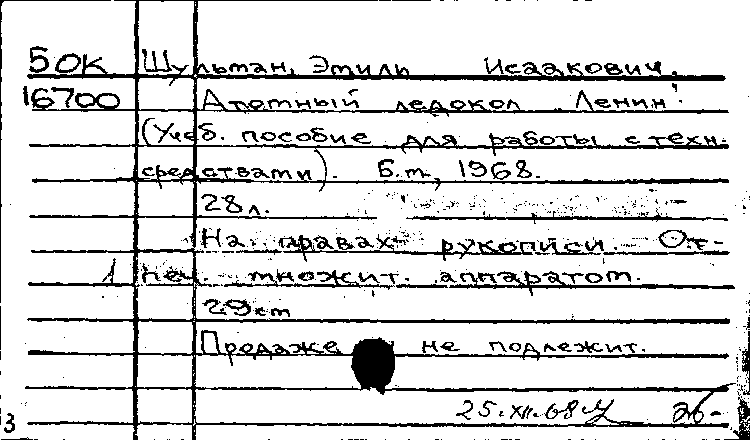 50К Шульман, Эмиль Исаакович.
16700 Атомный ледокол „Ленин".
(Учеб. пособие для работы с техн.
средствами). Б.м., 1968.
28л.
На правах рукописи. – От-
1 печ. множит. аппаратом.
29см
Продаже не подлежит.
25.XII.68
3